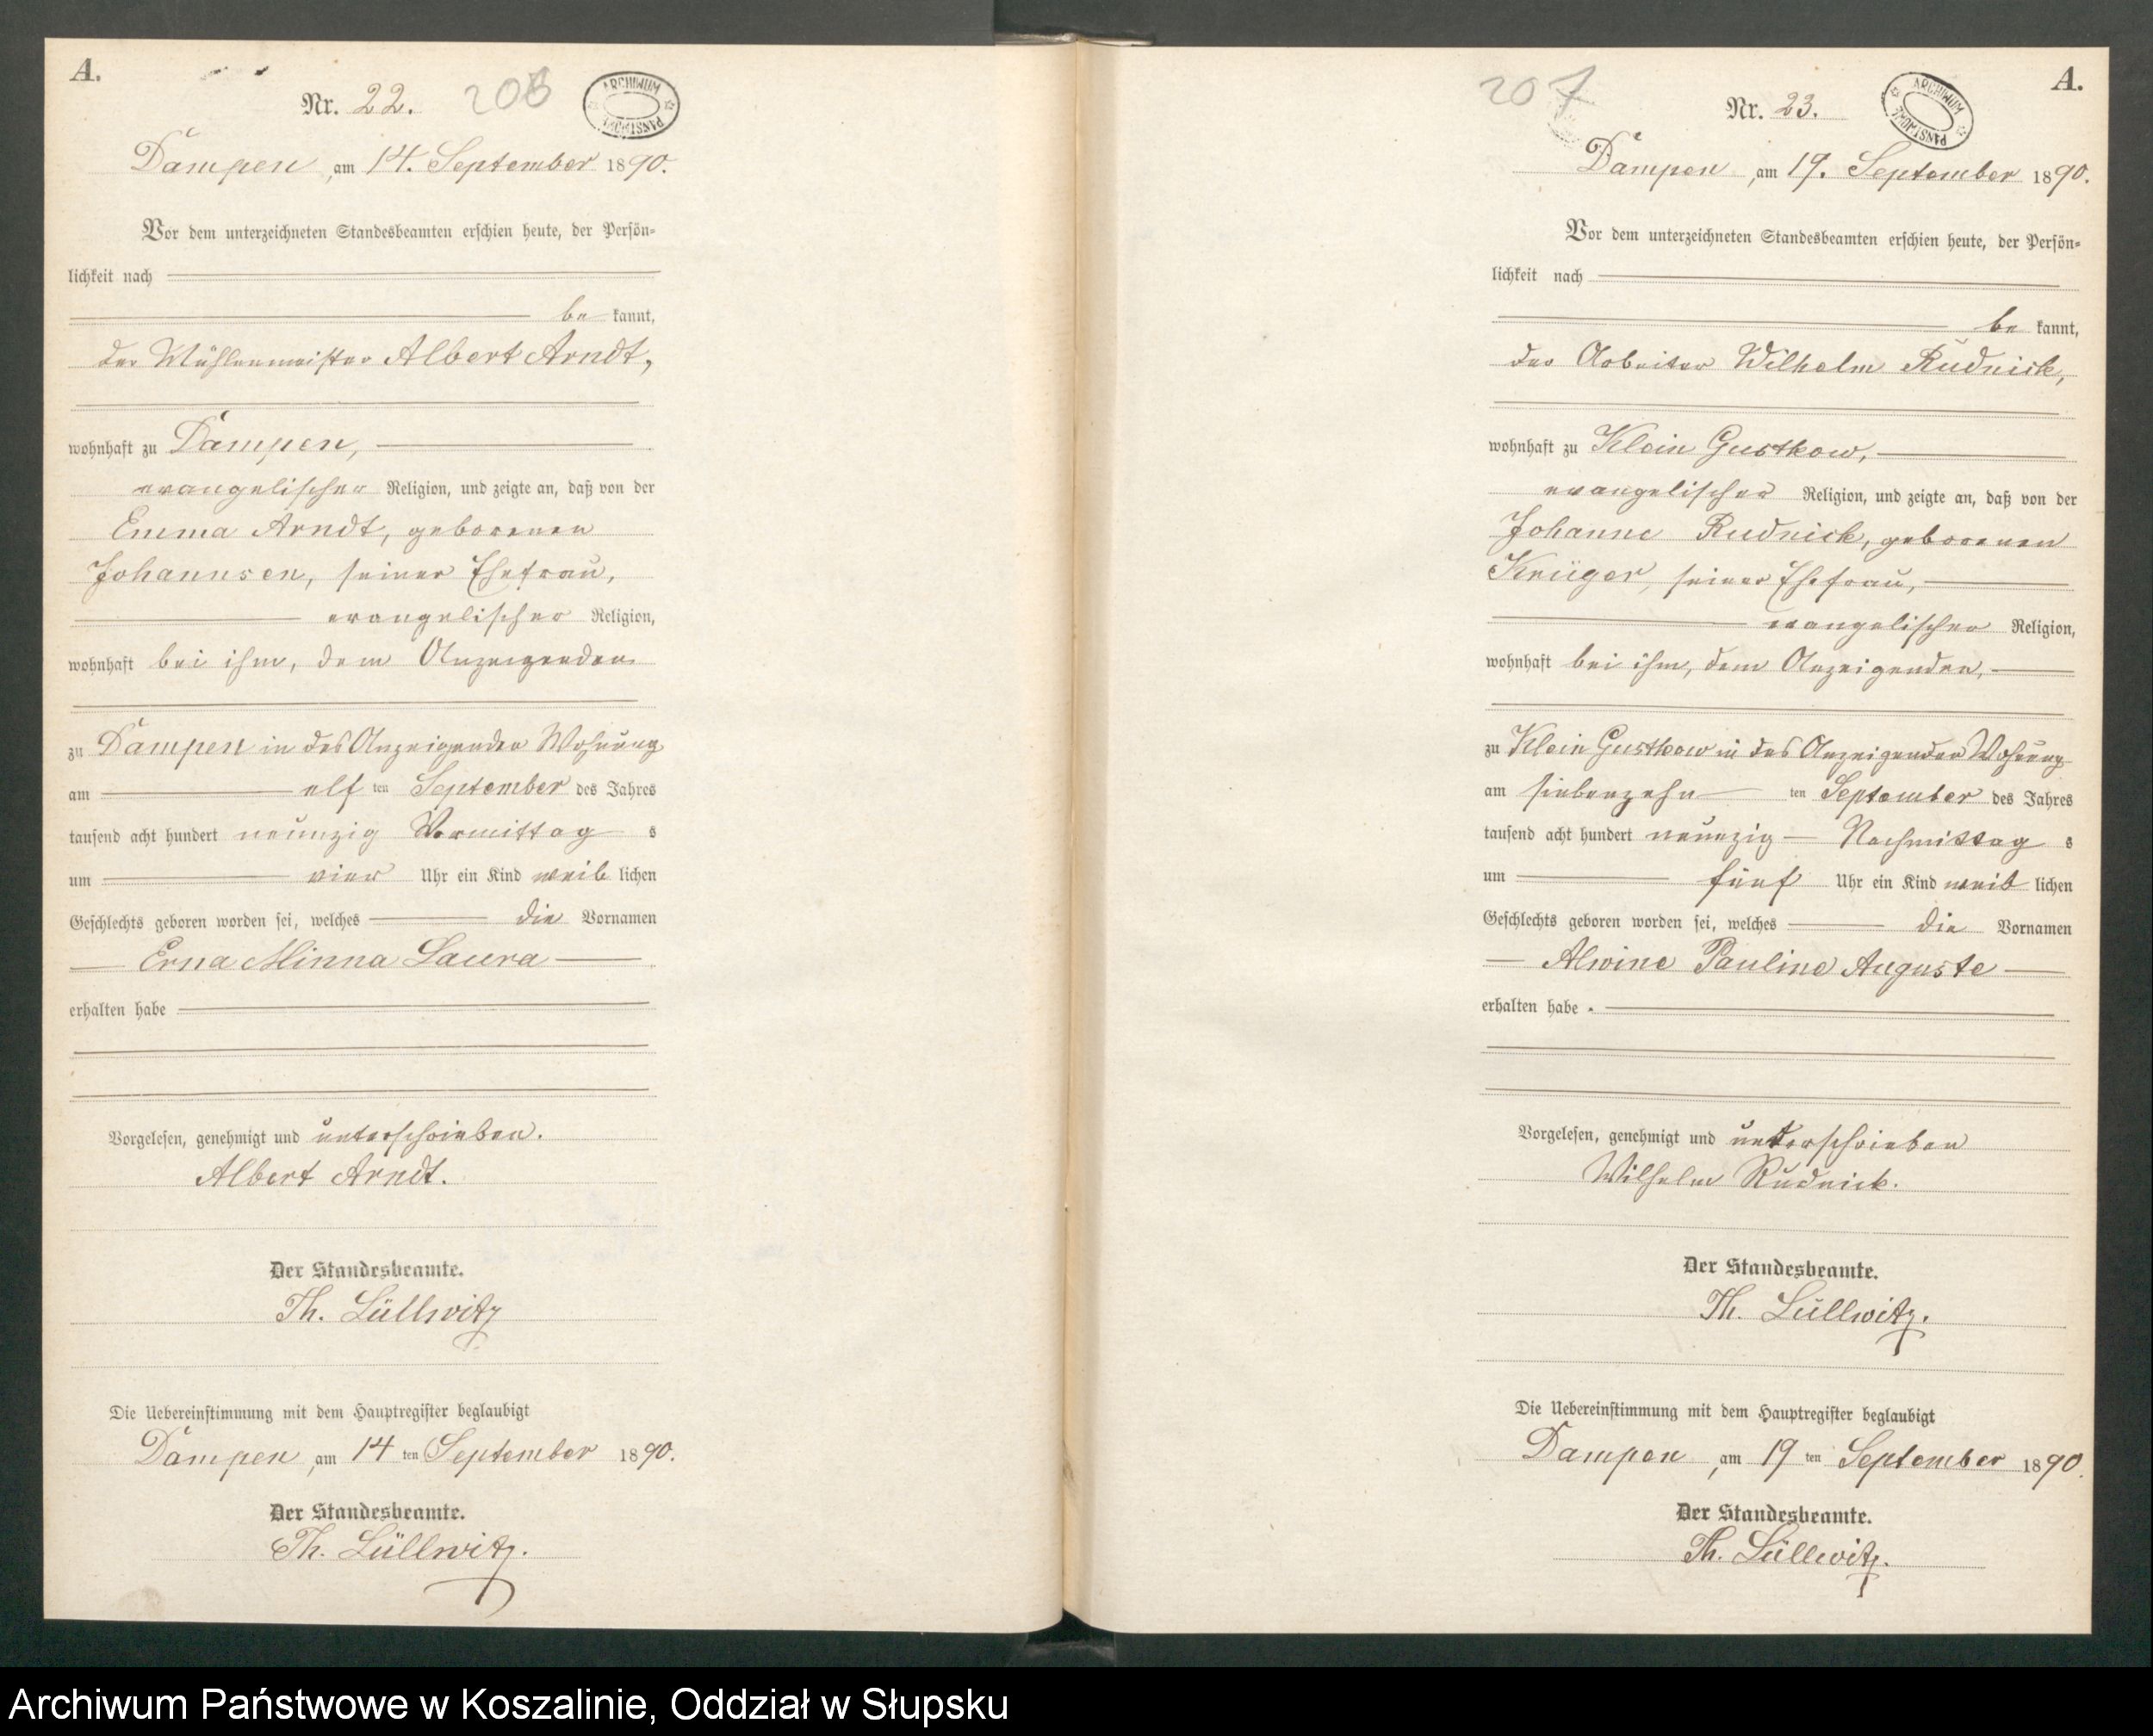 A.
Nr. 22.
206
ARCHIWUM PAŃSTWOWE
Dampen, am 14. September 1890.
Vor dem unterzeichneten Standesbeamten erschien heute, der Persön-
lichkeit nach
be kannt,
der Mühlenmeister Albert Arndt,
wohnhaft zu Dampen,
evangelischer Religion, und zeigte an, daß von der
Emma Arndt, geborenen
Johannsen, seiner Ehefrau,
evangelischer Religion,
wohnhaft bei ihm, dem Anzeigenden
zu Dampen in des Anzeigenden Wohnung
am elf ten September des Jahres
tausend acht hundert neunzig Vormittag s
um vier Uhr ein Kind weib lichen
Geschlechts geboren worden sei, welches die Vornamen
Erna Minna Laura
erhalten habe
Vorgelesen, genehmigt und unterschrieben.
Albert Arndt.
Der Standesbeamte.
Th. Lüllwitz
Die Uebereinstimmung mit dem Hauptregister beglaubigt
Dampen, am 14 ten September 1890.
Der Standesbeamte.
Th. Lüllwitz.
207
A.
Nr. 23.
ARCHIWUM PAŃSTWOWE
Dampen, am 19. September 1890.
Vor dem unterzeichneten Standesbeamten erschien heute, der Persön-
lichkeit nach
be kannt,
der Arbeiter Wilhelm Rudnick,
wohnhaft zu Klein Gustkow,
evangelischer Religion, und zeigte an, daß von der
Johanne Rudnick, geborenen
Krüger, seiner Ehefrau,
evangelischer Religion,
wohnhaft bei ihm, dem Anzeigenden,
zu Klein Gustkow in des Anzeigenden Wohnung
am siebenzehn ten September des Jahres
tausend acht hundert neunzig Nachmittag s
um fünf Uhr ein Kind weib lichen
Geschlechts geboren worden sei, welches die Vornamen
Alwine Pauline Auguste
erhalten habe.
Vorgelesen, genehmigt und unterschrieben
Wilhelm Rudnick.
Der Standesbeamte.
Th. Lüllwitz.
Die Uebereinstimmung mit dem Hauptregister beglaubigt
Dampen, am 19 ten September 1890.
Der Standesbeamte.
Th. Lüllwitz.
Archiwum Państwowe w Koszalinie, Oddział w Słupsku